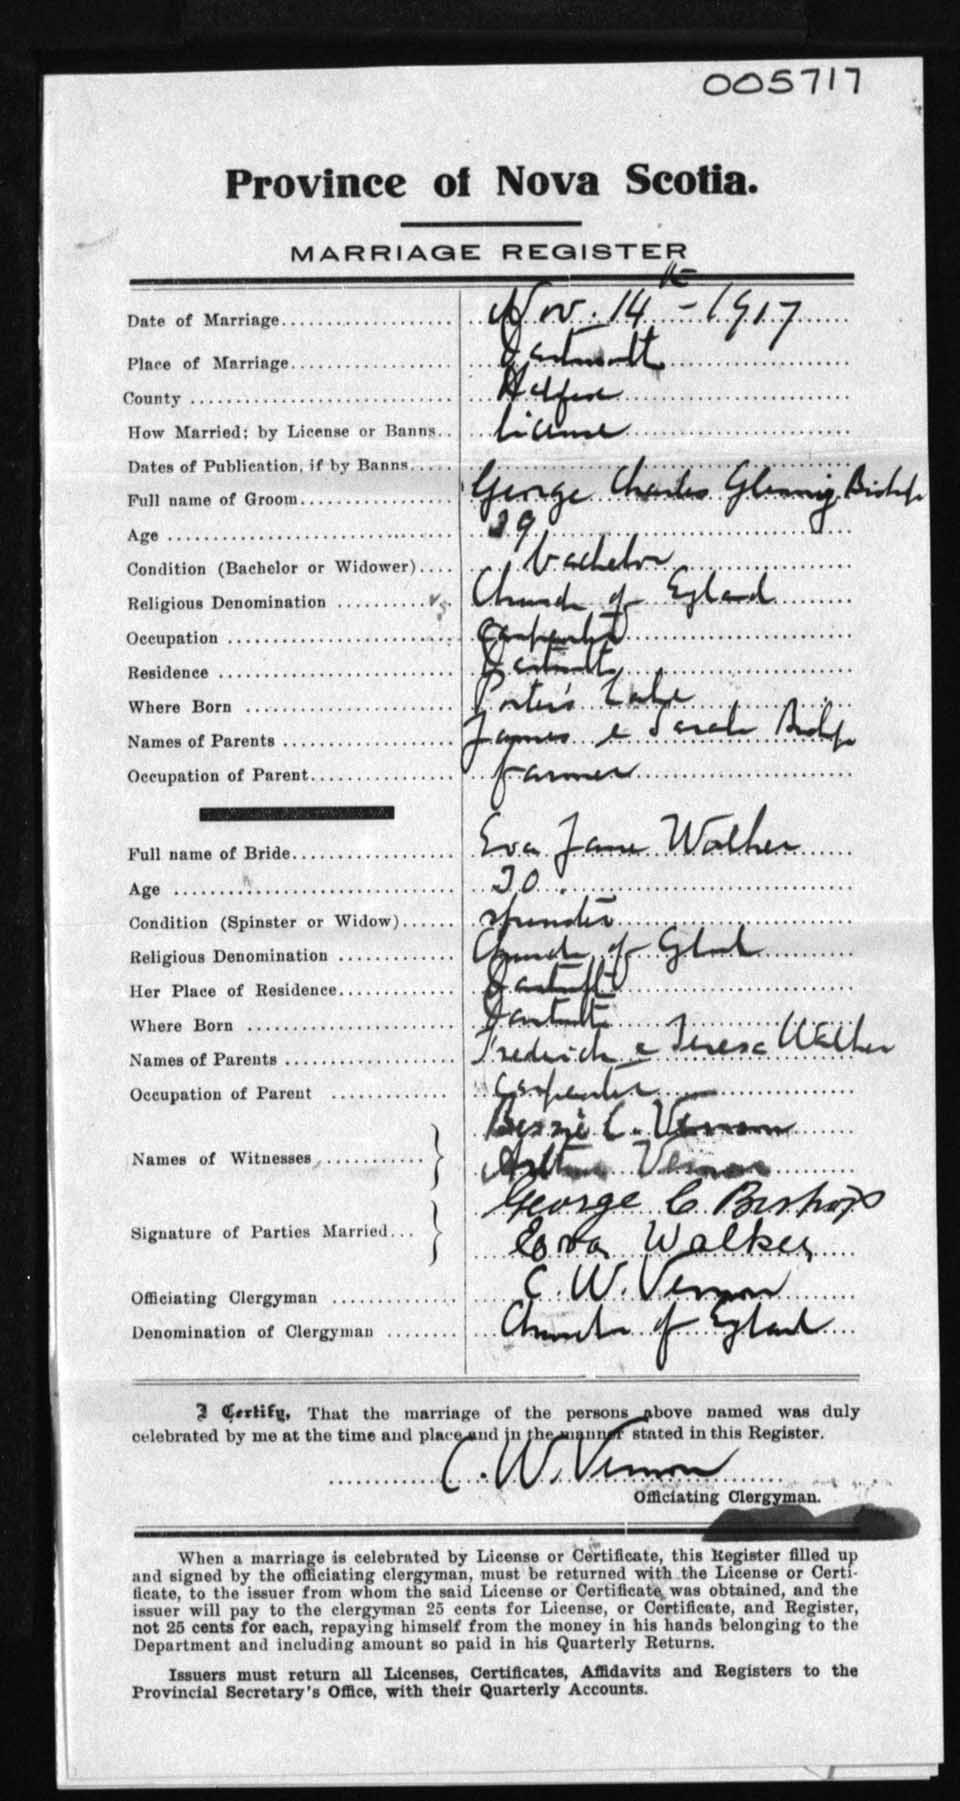 005717
Province of Nova Scotia.
MARRIAGE REGISTER
Date of Marriage Nov. 14th - 1917
Place of Marriage Dartmouth
County Halifax
How Married: by License or Banns License
Dates of Publication, if by Banns
Full name of Groom George Charles Bishop
Age 29
Condition (Bachelor or Widower) bachelor
Religious Denomination Church of England
Occupation carpenter
Residence Dartmouth
Where Born Porter's Lake
Names of Parents James & Sarah Bishop
Occupation of Parent farmer
Full name of Bride Eva Jane Walker
Age
Condition (Spinster or Widow) spinster
Religious Denomination Church of England
Her Place of Residence Dartmouth
Where Born Dartmouth
Names of Parents Frederick & Teresa Walker
Occupation of Parent carpenter
Names of Witnesses Bessie C. Vernon
Arthur Vernon
Signature of Parties Married George C Bishop
Eva Walker
Officiating Clergyman C. W. Vernon
Denomination of Clergyman Church of England
I Certify, That the marriage of the persons above named was duly
celebrated by me at the time and place and in the manner stated in this Register.
C. W. Vernon
Officiating Clergyman.
When a marriage is celebrated by License or Certificate, this Register filled up
and signed by the officiating clergyman, must be returned with the License or Certi-
ficate, to the issuer from whom the said License or Certificate was obtained, and the
issuer will pay to the clergyman 25 cents for License, or Certificate, and Register,
not 25 cents for each, repaying himself from the money in his hands belonging to the
Department and including amount so paid in his Quarterly Returns.
Issuers must return all Licenses, Certificates, Affidavits and Registers to the
Provincial Secretary's Office, with their Quarterly Accounts.